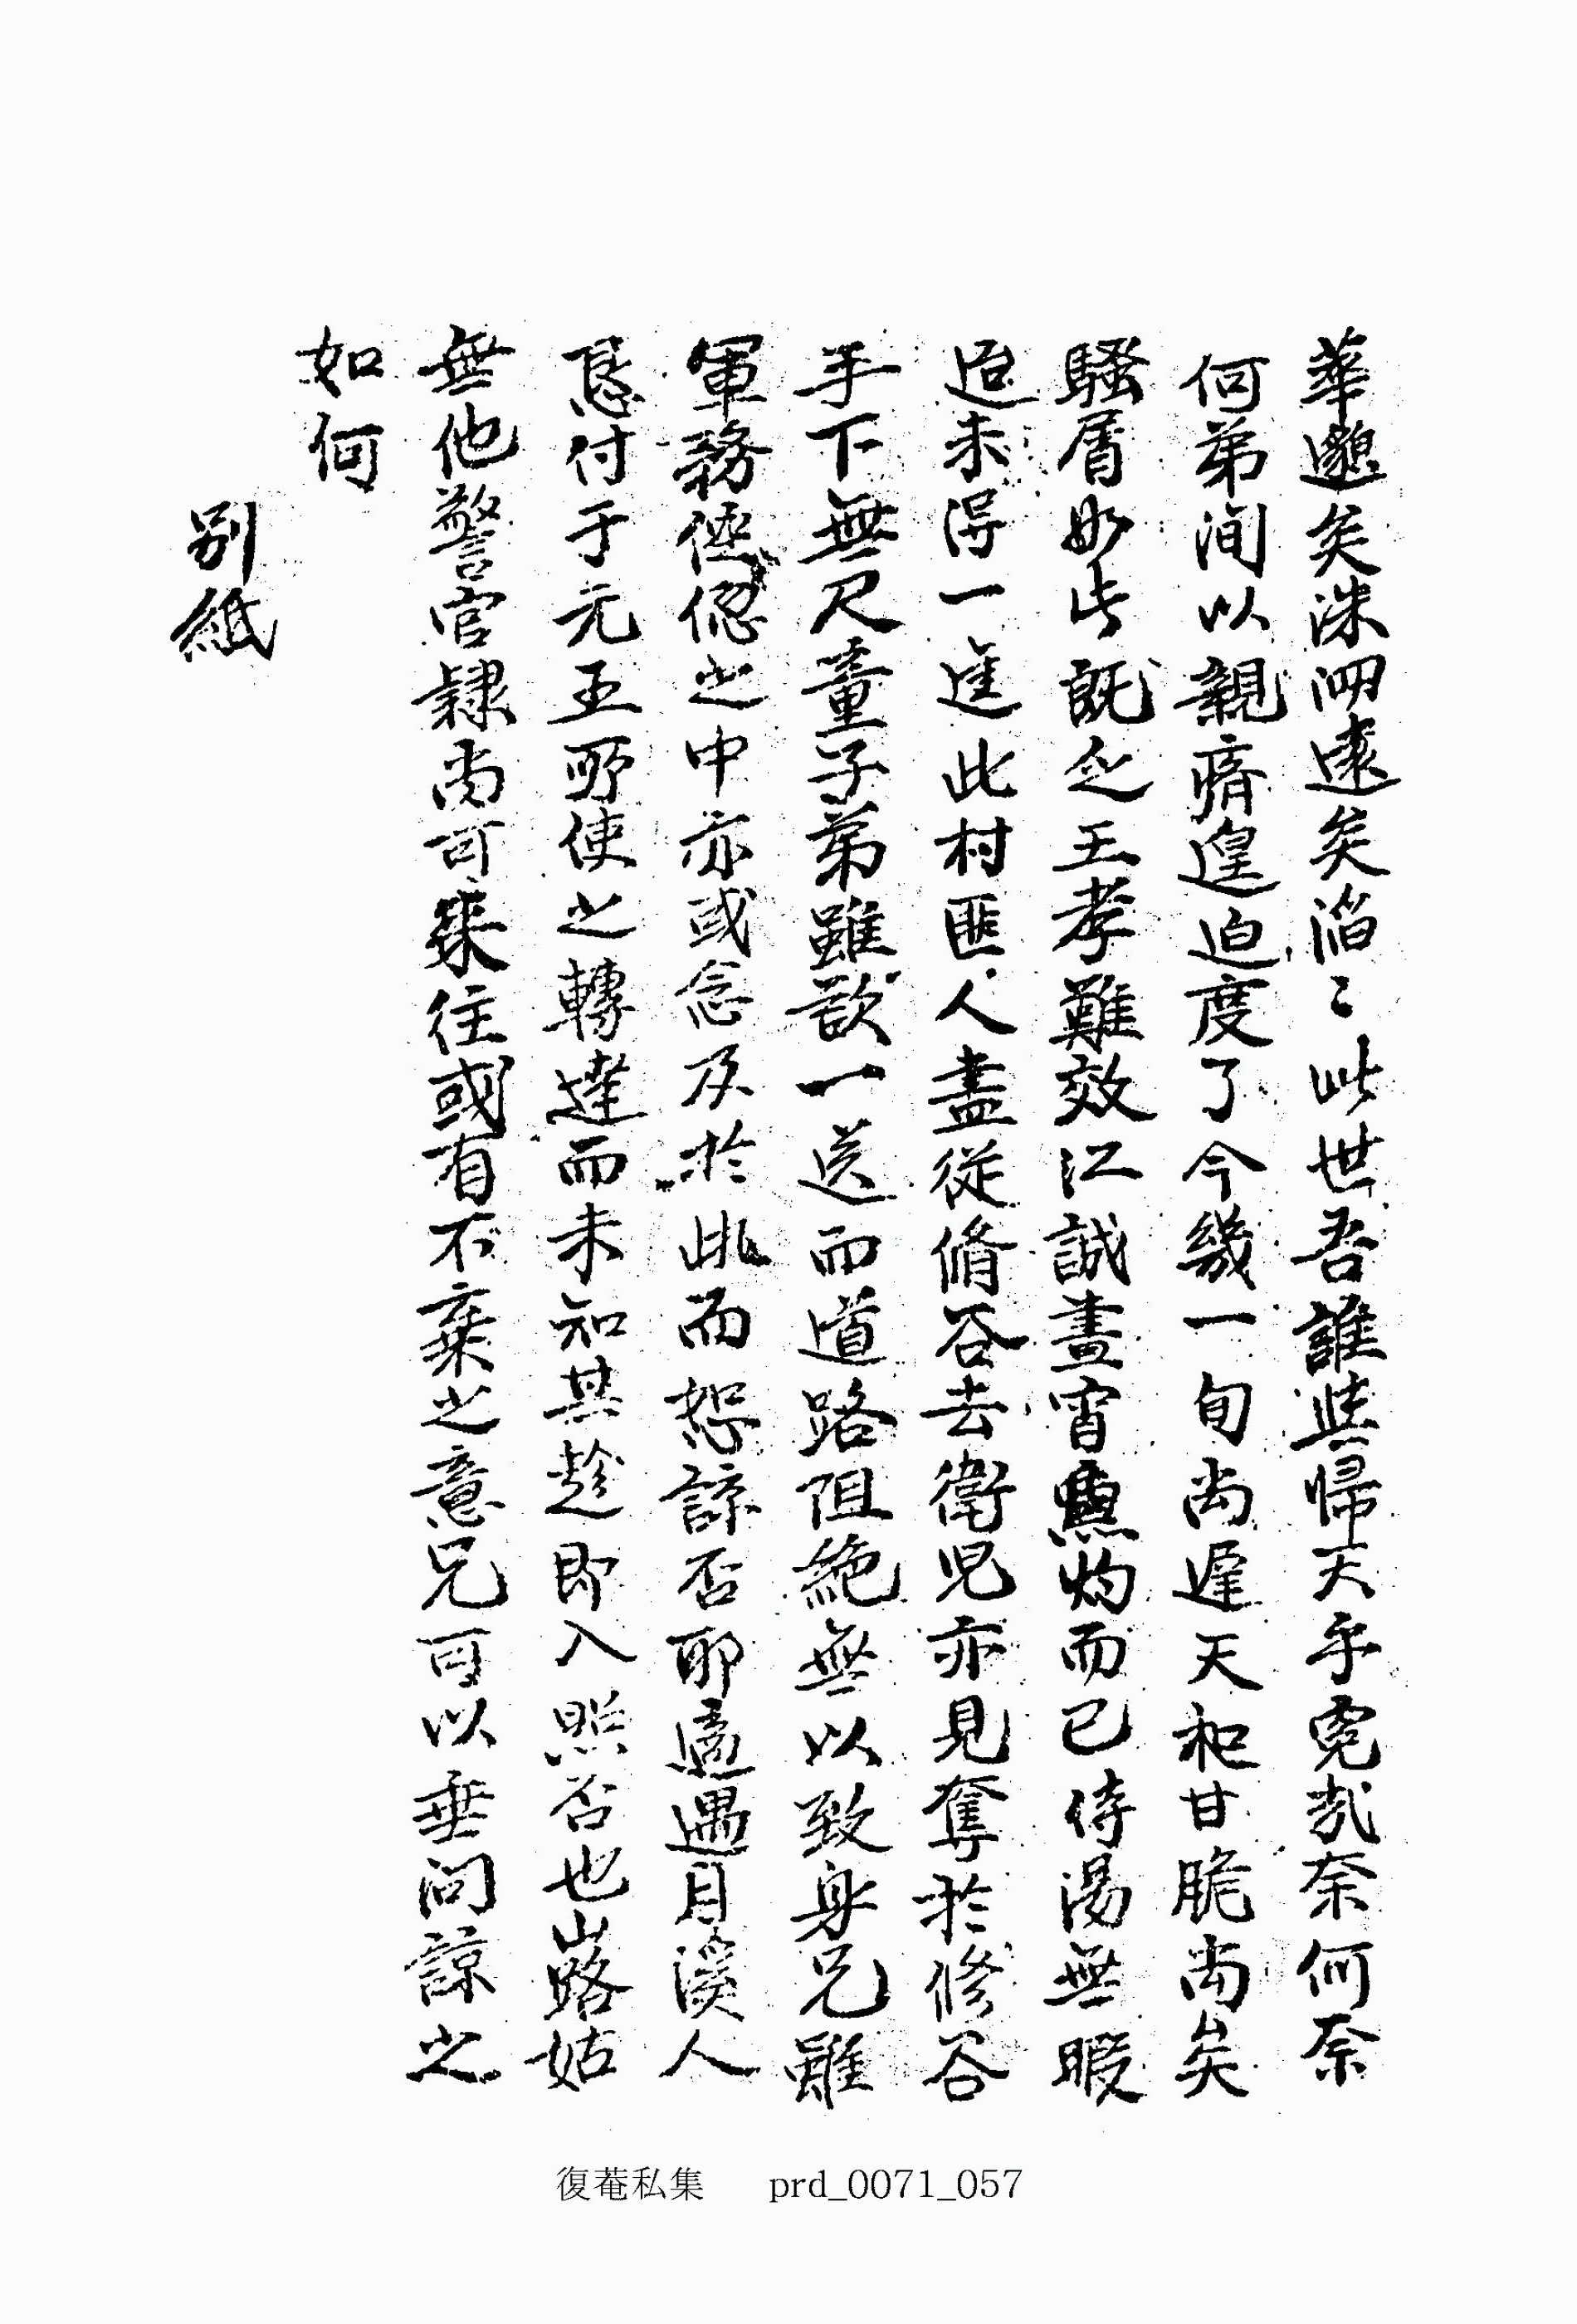 華邈矣洙泗遠矣滔〻此世吾誰與歸天乎寃哉奈何奈
何弟間以親癠遑迫度了今幾一旬尚遲天和甘脆尚矣
騷屑如此既乏王孝難效江誠晝宵熏灼而已侍湯無暇
迨未得一進此村匪人盡從脩谷去衛児亦見奪於修谷
手下無尺童子弟雖欲一送而道路阻絶無以致身兄雖
軍務倥傯之中亦或念及於此而恕諒否耶適遇月溪人
恳付于元玉所使之轉達而未知其趁即入照否也山路姑
無他警官隷尚可來往或有不棄之意兄可以垂問諒之
如何
別紙
復菴私集 prd_0071_057